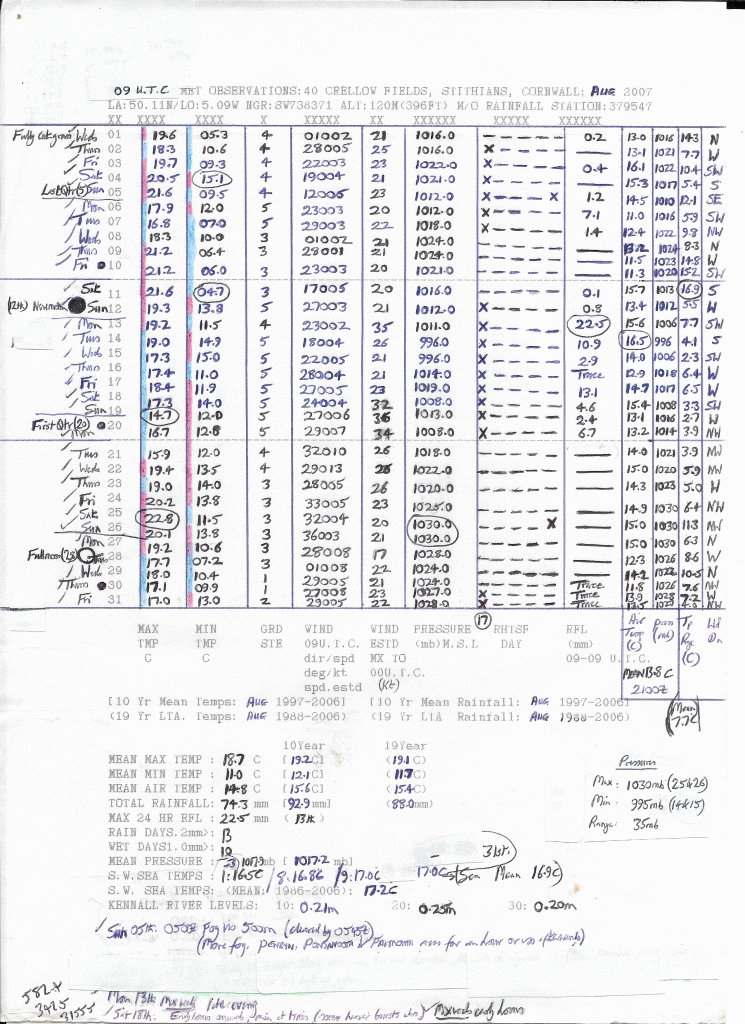 09 U.T.C MET OBSERVATIONS:40 CRELLOW FIELDS, STITHIANS, CORNWALL: AUG 2007
LA:50.11N/LO:5.09W NGR:SW738371 ALT:120M(396FT) M/O RAINFALL STATION:379547
XX XXXX XXXX X XXXXX XX XXXXXX XXXXX XXXXXX
Weds 01 19.6 05.3 4 01002 21 1016.0 0.2 13.0 1016 14.3 N
Thurs 02 18.3 10.6 4 28005 25 1016.0 X 13.1 1021 7.7 W
Fri 03 19.7 09.3 4 22003 23 1022.0 X 0.4 16.1 1022 10.4 SW
Sat 04 20.5 15.1 4 19004 21 1021.0 X 15.3 1017 5.4 S
Last Qtr(5) Sun 05 21.6 09.5 4 12006 23 1012.0 X X 1.2 14.5 1010 12.1 SE
Mon 06 17.9 12.0 5 23003 20 1012.0 X 7.1 11.0 1016 5.9 SW
Tues 07 16.8 07.0 5 29003 22 1018.0 X 1.4 12.4 1022 9.8 NW
Weds 08 18.3 10.0 3 01002 21 1024.0 13.2 1024 8.3 N
Thurs 09 21.2 06.4 3 28001 21 1024.0 11.5 1023 14.8 W
Fri 10 21.2 06.0 3 23003 20 1021.0 11.3 1020 15.2 SW
Sat 11 21.6 04.7 3 17005 21 1020.0 0.1 15.7 1013 16.9 S
(12th) Newmoon Sun 12 19.3 13.8 5 27003 21 1012.0 X 0.8 13.4 1012 5.5 W
Mon 13 19.2 11.5 4 23002 35 1011.0 X 22.5 15.6 1006 7.7 SW
Tues 14 19.0 14.9 5 18004 26 996.0 X 10.9 16.5 996 4.1 S
Weds 15 17.3 15.0 5 22005 21 996.0 X 2.9 14.0 1006 2.3 SW
Thurs 16 17.4 11.0 5 28004 21 1014.0 X Trace 12.9 1018 6.4 W
Fri 17 18.4 11.9 5 27005 23 1019.0 X 13.1 14.7 1017 6.5 W
Sat 18 17.3 14.0 5 24004 32 1008.0 X 4.6 15.4 1008 3.3 SW
Sun 19 14.7 12.0 5 27006 36 1013.0 X 2.4 13.1 1016 2.7 W
First Qtr(20) Mon 20 16.7 12.8 5 29007 34 1008.0 X 6.7 13.2 1014 3.9 NW
Tues 21 15.9 12.0 4 32010 26 1018.0 14.0 1021 3.9 NW
Weds 22 19.4 13.5 4 29013 28 1022.0 15.0 1020 5.9 NW
Thurs 23 19.0 14.0 3 28005 26 1020.0 14.3 1023 5.0 W
Fri 24 20.2 13.8 3 33005 23 1025.0 14.9 1030 6.4 NW
Sat 25 22.8 11.5 3 32004 20 1030.0 X 15.0 1030 11.3 NW
Sun 26 20.1 13.8 3 36003 21 1030.0 15.0 1030 6.3 N
Mon 27 19.2 10.6 3 28008 17 1028.0 12.3 1026 8.6 W
Fullmoon(28) Tues 28 17.7 07.2 3 01008 22 1024.0 14.2 1022 10.5 N
Weds 29 18.0 10.4 1 29005 21 1024.0 Trace 11.8 1026 7.6 NW
Thurs 30 17.1 09.9 1 27008 23 1027.0 X Trace 13.9 1028 7.2 W
Fri 31 17.0 13.0 2 29005 22 1028.0 X Trace NW
(17)
MAX MIN GRD WIND WIND PRESSURE RHTSF RFL Air pres Tp Wd
TMP TMP STE 09U.T.C. ESTD (mb)M.S.L DAY (mm) Temp (mb) Rge Dn
C C dir/spd MX TO 09-09 U.T.C. (C) (C)
deg/kt 00U.T.C. MEAN 13.8 C
spd.estd (kt) 2100Z
[10 Yr Mean Temps: AUG 1997-2006] [10 Yr Mean Rainfall: AUG 1997-2006] (Mean 7.7C)
(19 Yr LTA. Temps: AUG 1988-2006) (19 Yr LTA Rainfall: AUG 1988-2006)
10Year 19Year
MEAN MAX TEMP : 18.7 C [19.2C] (19.1C)
MEAN MIN TEMP : 11.0 C [12.1C] (11.7C)
MEAN AIR TEMP : 14.8 C [15.6C] (15.4C)
TOTAL RAINFALL: 74.3 mm [92.9mm] (88.0mm)
MAX 24 HR RFL : 22.5 mm (13th)
RAIN DAYS.2mm>: 13
WET DAYS1.0mm>: 10
MEAN PRESSURE : 1017.9 mb [1017.2 mb]
S.W.SEA TEMPS : 1:16.5C /8:16.8C /9:17.0C 17.0C 31st. Mean 16.9C)
S.W. SEA TEMPS: (MEAN: 1986-2006): 17.2C
KENNALL RIVER LEVELS: 10: 0.21m 20: 0.25m 30: 0.20m
Pressures
Max: 1030mb (25&26)
Min: 995mb (14&15)
Range: 35mb
Sun 05th: 0500Z Fog vis 500m (cleared by 0545Z)
(More fog. PENRYN, PONSANOOTH & FALMOUTH area for an hour or so
Mon 13th Mx wds late evening
Sat 18th: Mx wds early hours
582+
3425
31555